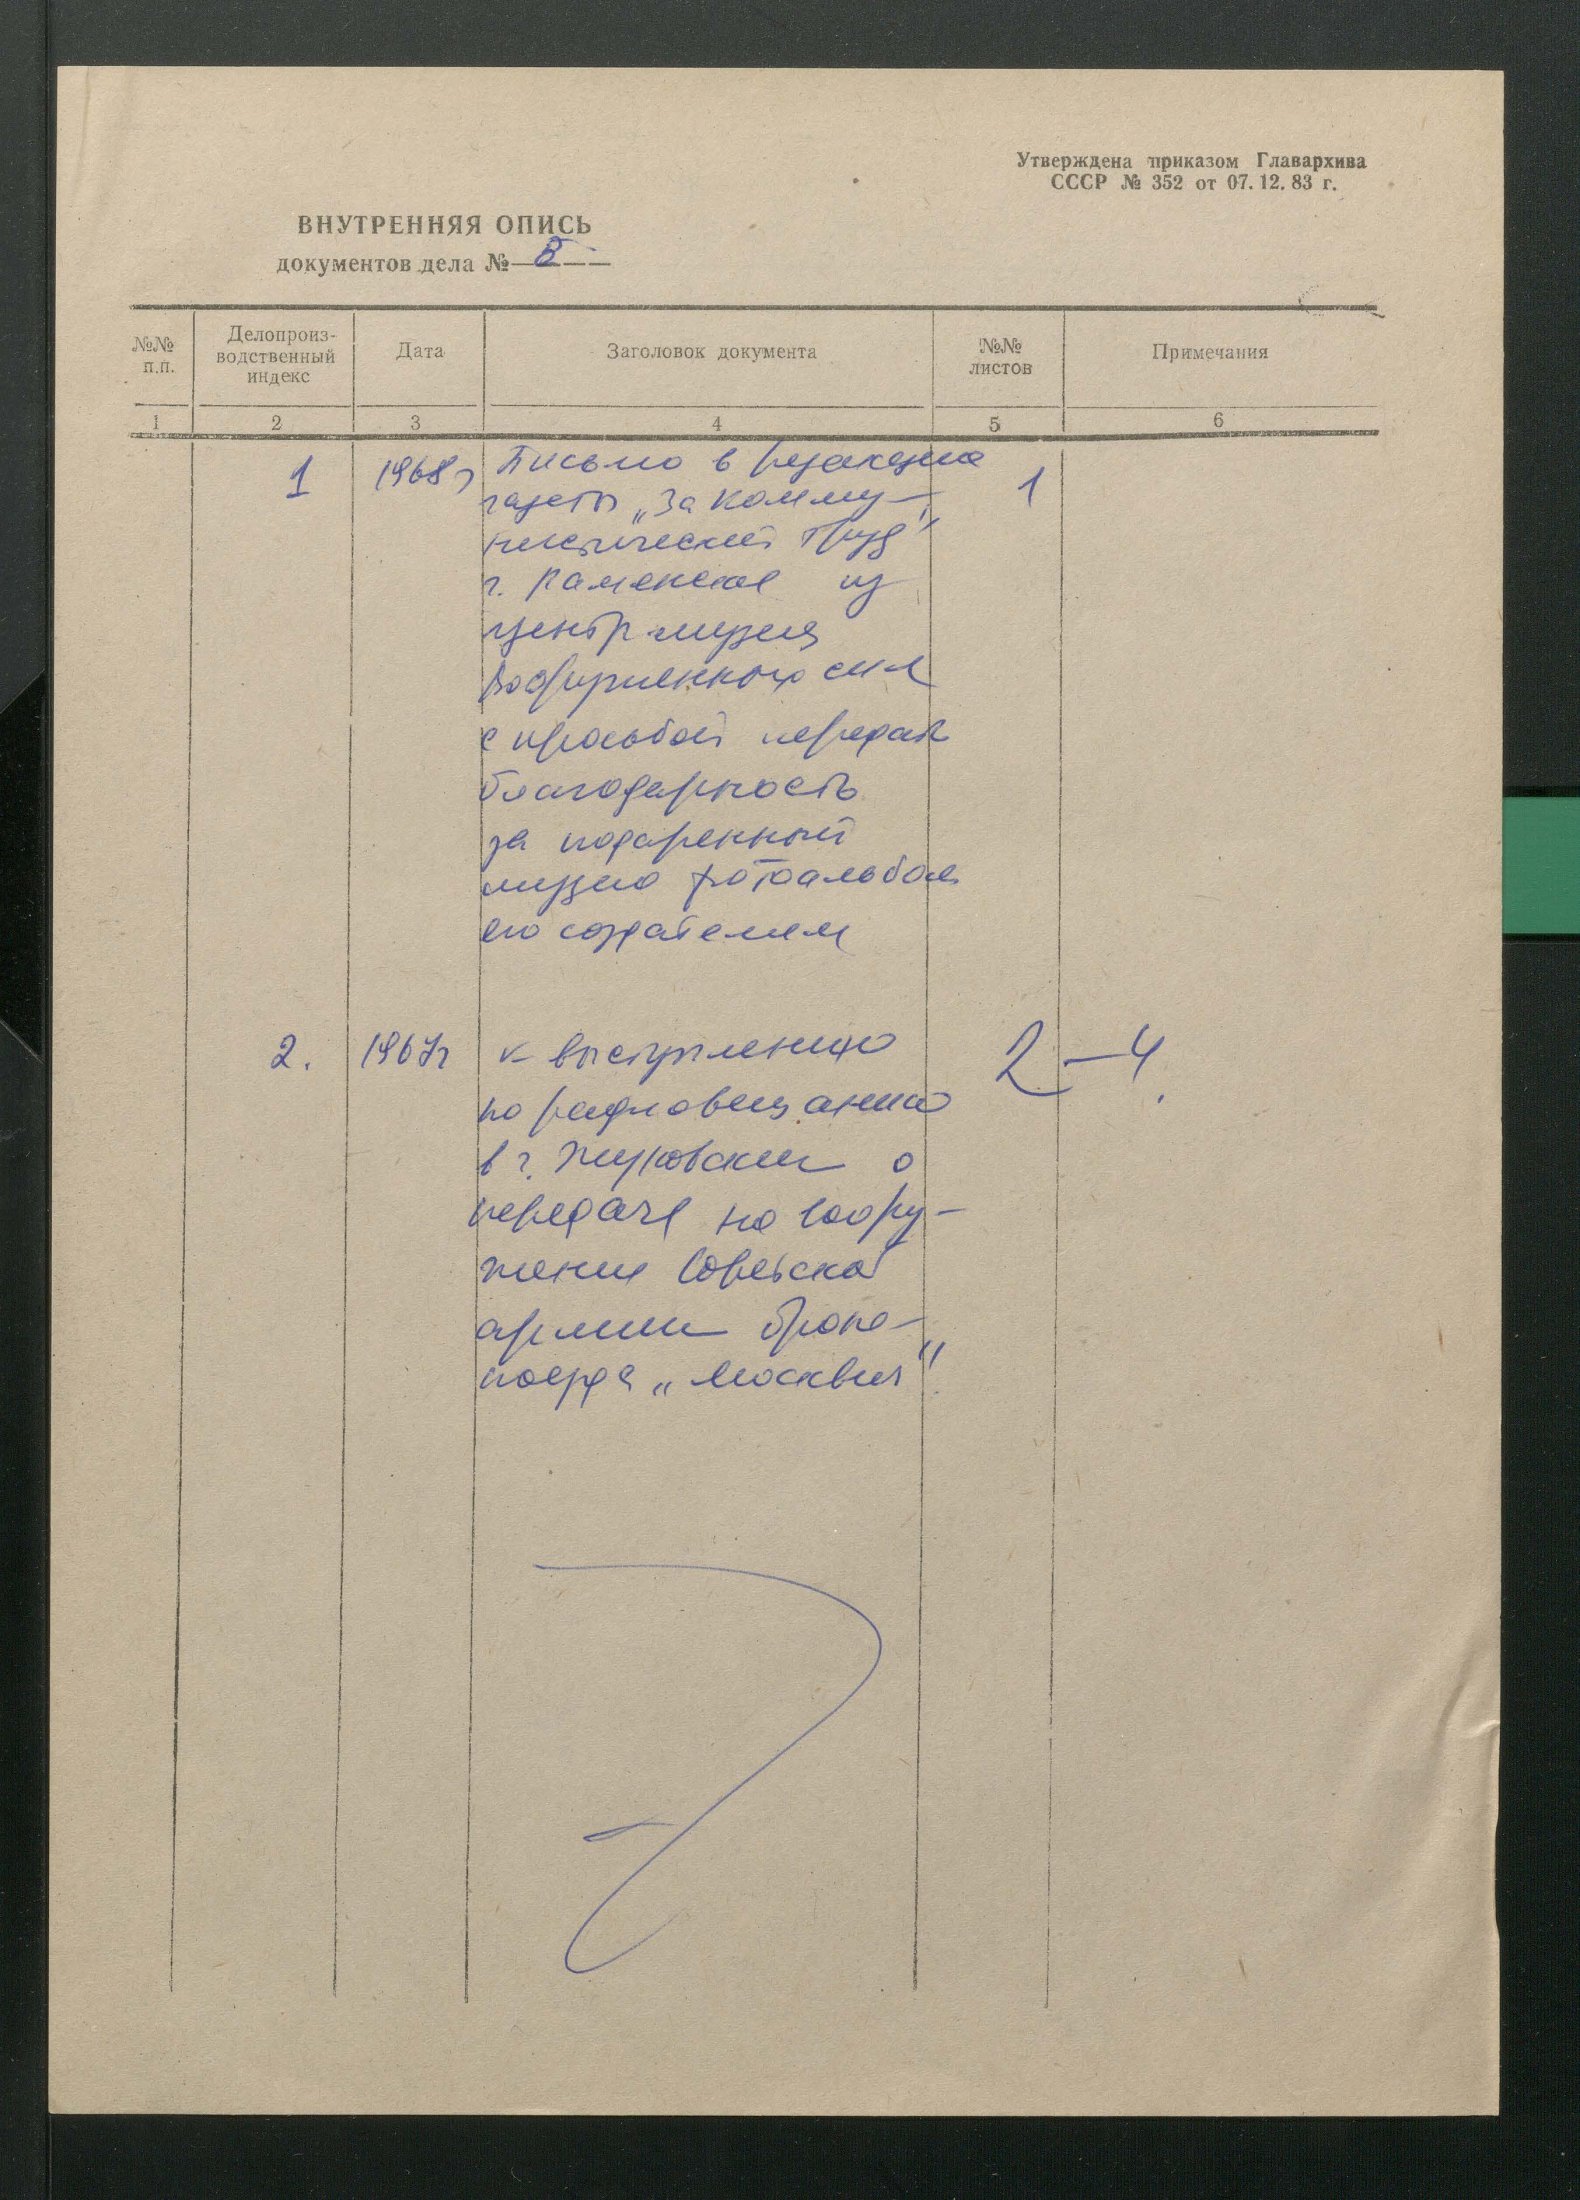 Утверждена приказом Главархива
СССР № 352 от 07.12.83 г.
ВНУТРЕННЯЯ ОПИСЬ
документов дела № 8
№№ п.п.
Делопроиз-
водственный
индекс
Дата
Заголовок документа
№№
листов
Примечания
1 2 3 4 5 6
1 1968г Письмо в редакцию 1
газеты „За комму-
нистический труд"
г. Раменское из
центр музея
вооруженных сил
с просьбой передать
благодарность
за подаренный
музею фотоальбом
его создателем
2. 1967г к выступлению 2-4
по радиовещанию
в г. Жуковский о
передаче на воору-
жение Советской
армии броне-
поезда „Москвич"